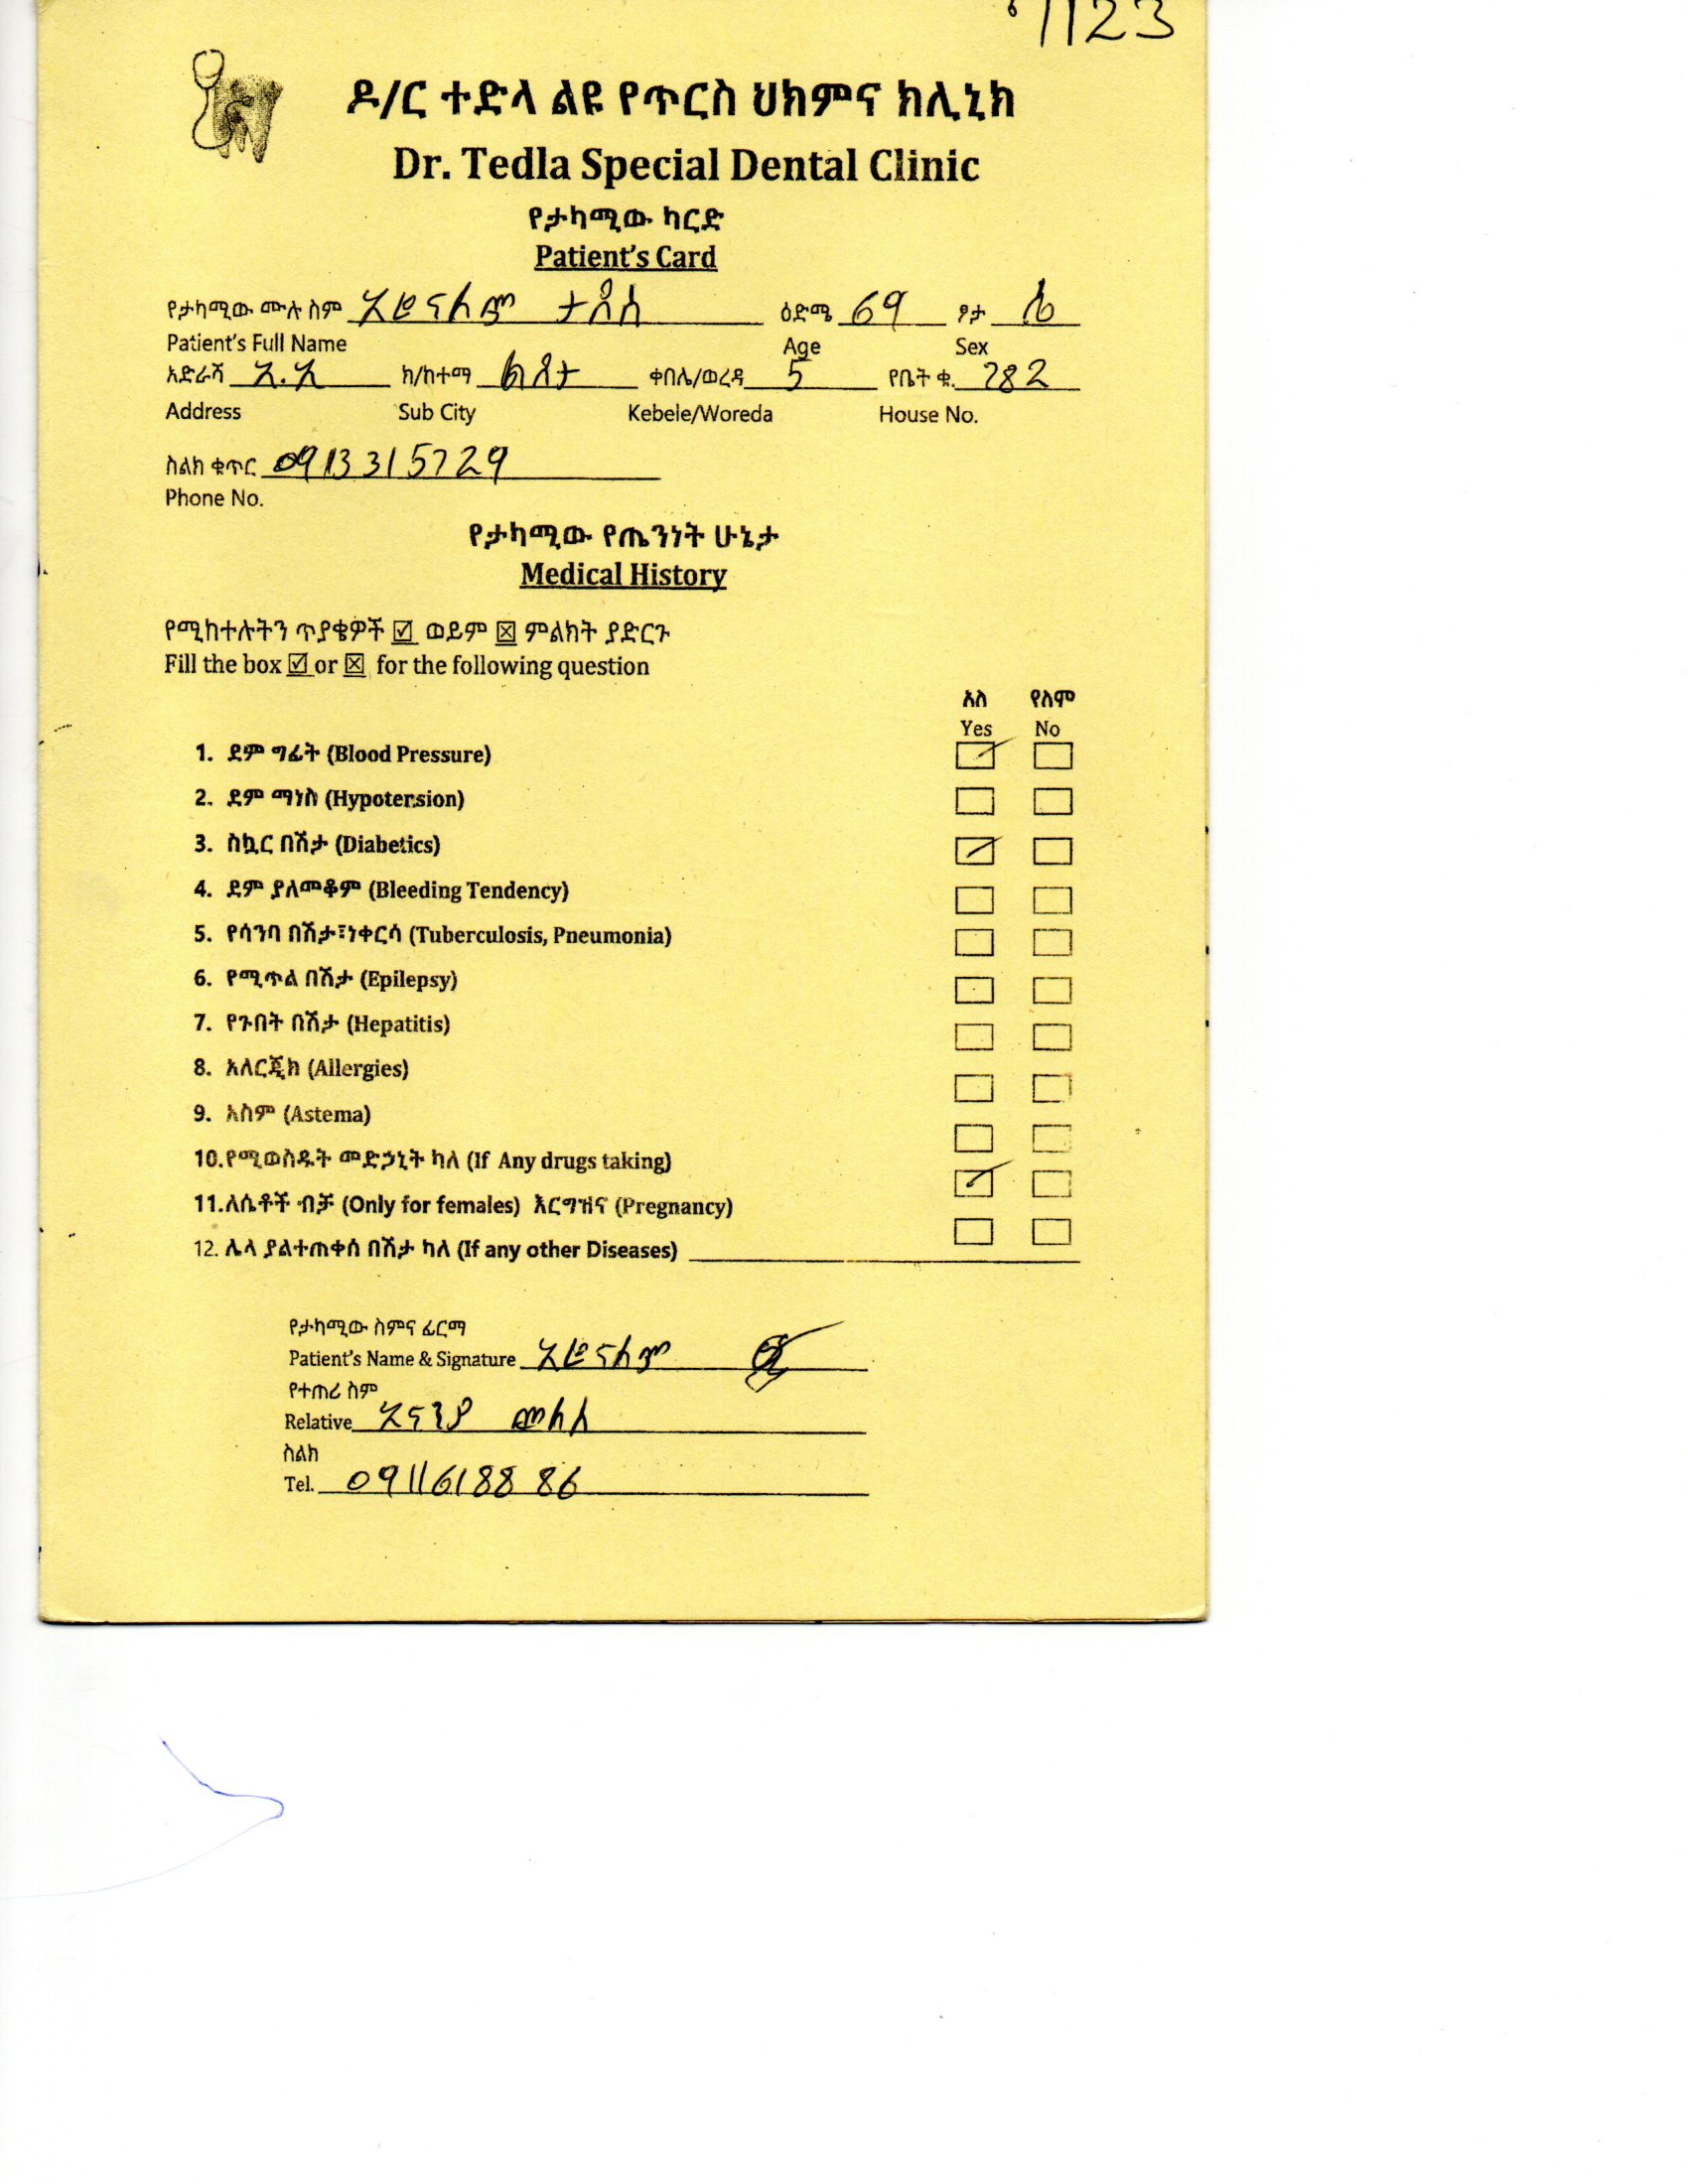 7123
ዶ/ር ተድላ ልዩ የጥርስ ህክምና ክሊኒክ
Dr. Tedla Special Dental Clinic
የታካሚው ካርድ
Patient's Card
የታካሚው ሙሉ ስም ታደሰ ዕድሜ 69 ፆታ ሴ
Patient's Full Name Age Sex
አድራሻ አ.አ ክ/ከተማ ልደታ ቀበሌ/ወረዳ 5 የቤት ቁ. 782
Address Sub City Kebele/Woreda House No.
ስልክ ቁጥር 0913315729
Phone No.
የታካሚው የጤንነት ሁኔታ
Medical History
የሚከተሉትን ጥያቄዎች ☑ ወይም ☒ ምልክት ያድርጉ
Fill the box ☑ or ☒ for the following question
አለ የለም
Yes No
1. ደም ግፊት (Blood Pressure)
2. ደም ማነስ (Hypotension)
3. ስኳር በሽታ (Diabetics)
4. ደም ያለመቆም (Bleeding Tendency)
5. የሳንባ በሽታ፣ነቀርሳ (Tuberculosis, Pneumonia)
6. የሚጥል በሽታ (Epilepsy)
7. የጉበት በሽታ (Hepatitis)
8. አለርጂክ (Allergies)
9. አስም (Astema)
10.የሚወስዱት መድኃኒት ካለ (If Any drugs taking)
11.ለሴቶች ብቻ (Only for females) እርግዝና (Pregnancy)
12. ሌላ ያልተጠቀሰ በሽታ ካለ (If any other Diseases)
የታካሚው ስምና ፊርማ
Patient's Name & Signature
የተጠሪ ስም
Relative አናንያ
ስልክ
Tel. 0911618886